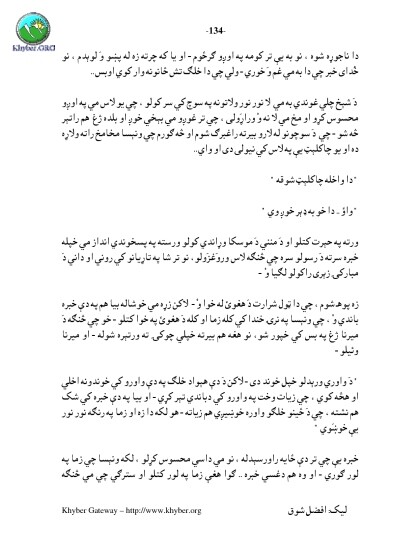 -134-
Khyber.ORG
دا ناجوړه شوه ، نو به يې تر کومه په اوږو ګرځوم - او يا که چرته زه له پښو ولوېدم ، نو
خُدای خبر چي دا به مي غم وَخوري - ولي چي دا خلګ تش ځانونه وار کوي اوبس..
دَ شيخ چلي غوندي به مي لا نور نور ولاتونه په سوچ کي سر کولو ، چي يو لاس مي په اوږو
محسوس کړو او مخ مي لا نه وُ وراړولی ، چي تر غوږو مي بېخي خوږ او بلده ژغ هم راتېر
څه شو - چي دَ سوچونو له لارو بېرته راغبرګ شوم او څه ګورم چي ونېسا مخامخ راته ولاړه
ده او يو چاکلېټ يې په لاس کي نيولی دی او واي..
" دا واخله چاکلېټ شوقه "
" واؤ - دا خو به ډېر خوږ وي "
ورته په حېرت کتلو او دَ مننې دَ موسکا وړاندې کولو ورسته په پسخوندي انداز مي خپله
خبره سرته دَ رسولو سره چي څنګه لاس وروغزولو ، نو تر شا په تاړيانو کي رونې او دانې دَ
مبارکی زېری راکولو لګيا وُ -
زه پوهـ شوم ، چي دا ټول شرارت دَ هغوئ له خوا وُ - لاکن زړه مي خوشاله بيا هم په دې خبره
باندي وُ ، چي ونېسا په نرۍ خندا کي کله زما او کله دَ هغوئ په خوا کتلو - خو چي څنګه دَ
ميرنا ژغ په بس کي خپور شو ، نو هغه هم بېرته خپلي چوکۍ ته ورتېره شوله - او ميرنا
وئيلو -
" دَ واوري ورېدلو خپل خوند دی - لاکن دَ دې هېواد خلګ په دې واورو کي خوندونه اخلي
او هڅه کوي ، چي زيات وخت په واورو کي دباندي تېر کړي - او بيا په دې خبره کي شک
هم نشته ، چي دَ ځينو خلګو واوره خوښېږي هم زياته - هو لکه دا زه او زما په رنګه نور نور
يې خوښوي "
خبره يې چي تر دې ځايه راورسېدله ، نو مي داسي محسوس کړلو ، لکه ونېسا چي زما په
لور ګوري - او وه هم دغسي خبره .. ګوا هغې زما په لور کتلو او سترګي چي مي څنګه
Khyber Gateway – http://www.khyber.org
ليک: افضل شوق